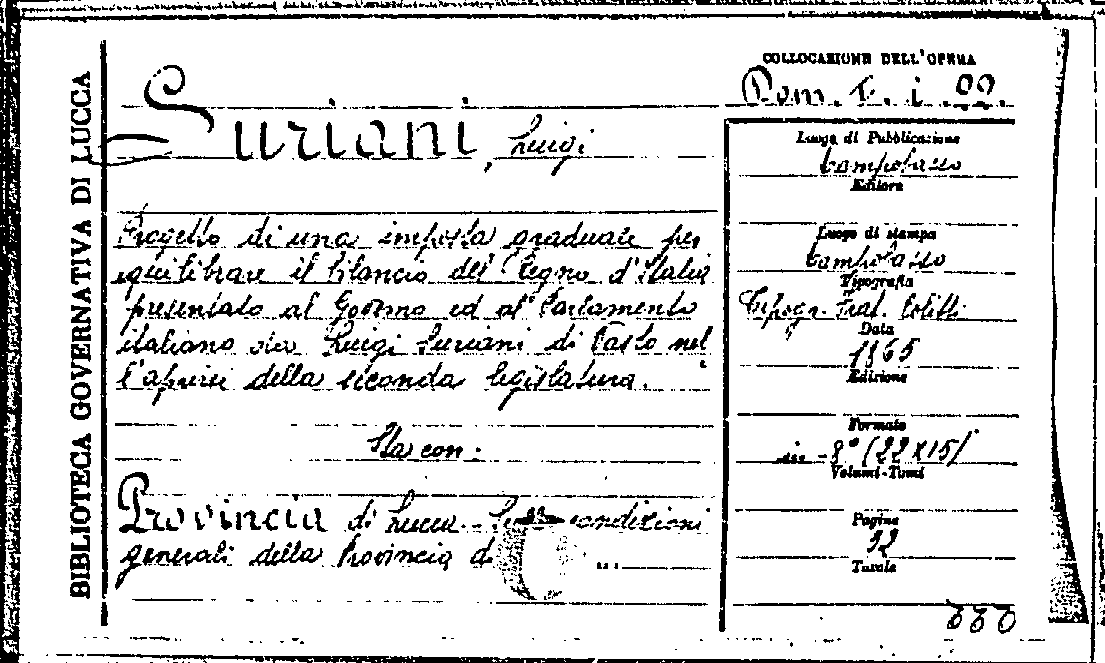 BIBLIOTECA GOVERNATIVA DI LUCCA
COLLOCAZIONE DELL'OPERA
Suriani, Luigi
Luogo di Pubblicazione
Campobasso
Editore
Progetto di una imposta graduale per
equilibrare il bilancio del Regno d'Italia
presentato al Governo ed al Parlamento
italiano da Luigi Suriani di Vasto nel
l'aprirsi della seconda legislatura.
Luogo di stampa
Campobasso
Tipografia
Tipogr. Frat. Colitti
Data
1865
Edizione
Formato
in-8° (22x15)
Volumi-Tomi
Sta con:
Provincia di Lucca. condizioni
generali della Provincia di ...
Pagine
32
Tavole